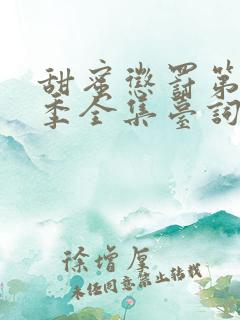 甜蜜懲罰第一
季全集臺詞
徐增厚
未经同意禁止转载